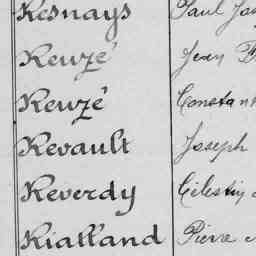 Resnays Paul
Reuzé Jean
Reuzé Constant
Revault Joseph
Reverdy Célestin
Rialland Pierre